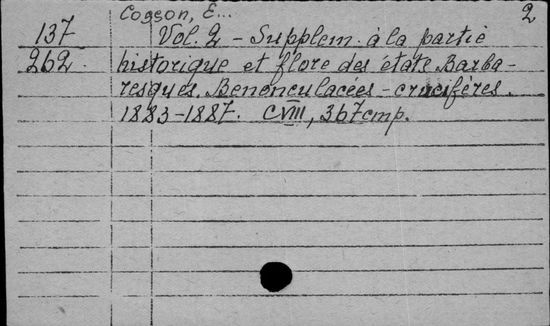 Cosson, E... 2
137 Vol. 2 - Supplem. à la partie
262. historique et flore des états Barba-
resques. Benonculacées - crucifères.
1883-1887. CVIII, 367 cmp.